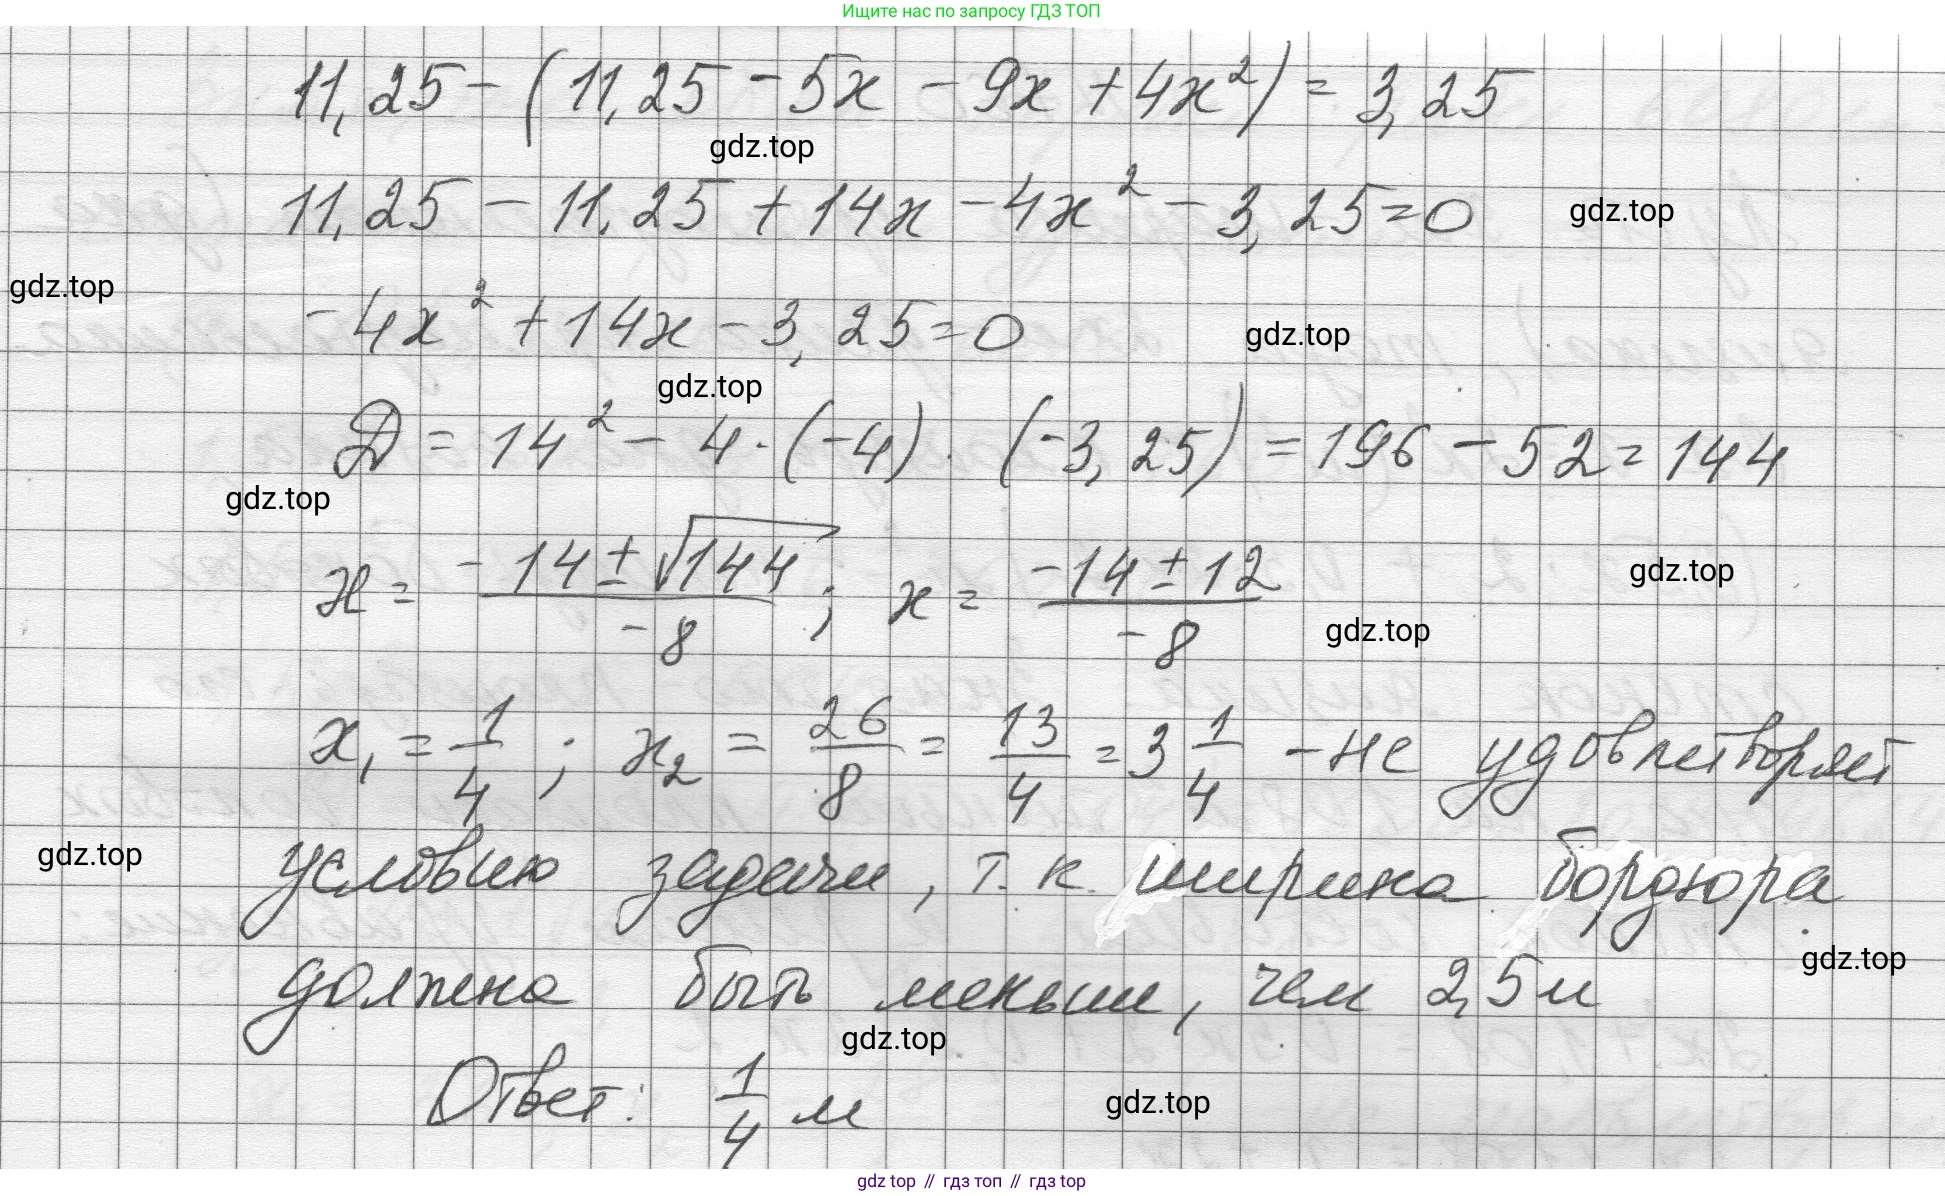 Ищите нас по запросу ГДЗ ТОП
11,25 - (11,25 - 5x - 9x + 4x²) = 3,25
gdz.top
11,25 - 11,25 + 14x - 4x² - 3,25 = 0
gdz.top
gdz.top
-4x² + 14x - 3,25 = 0
gdz.top
gdz.top
Д = 14² - 4 · (-4) · (-3,25) = 196 - 52 = 144
gdz.top
x = (-14 ± √144)/(-8) ; x = (-14 ± 12)/(-8)
gdz.top
gdz.top
x₁ = 1/4 ; x₂ = 26/8 = 13/4 = 3 1/4 - не удовлетворяет
gdz.top
условию задачи, т.к. ширина бордюра
gdz.top
должна быть меньше, чем 2,5 м
gdz.top
Ответ: 1/4 м
gdz.top
gdz top // гдз топ // гдз top